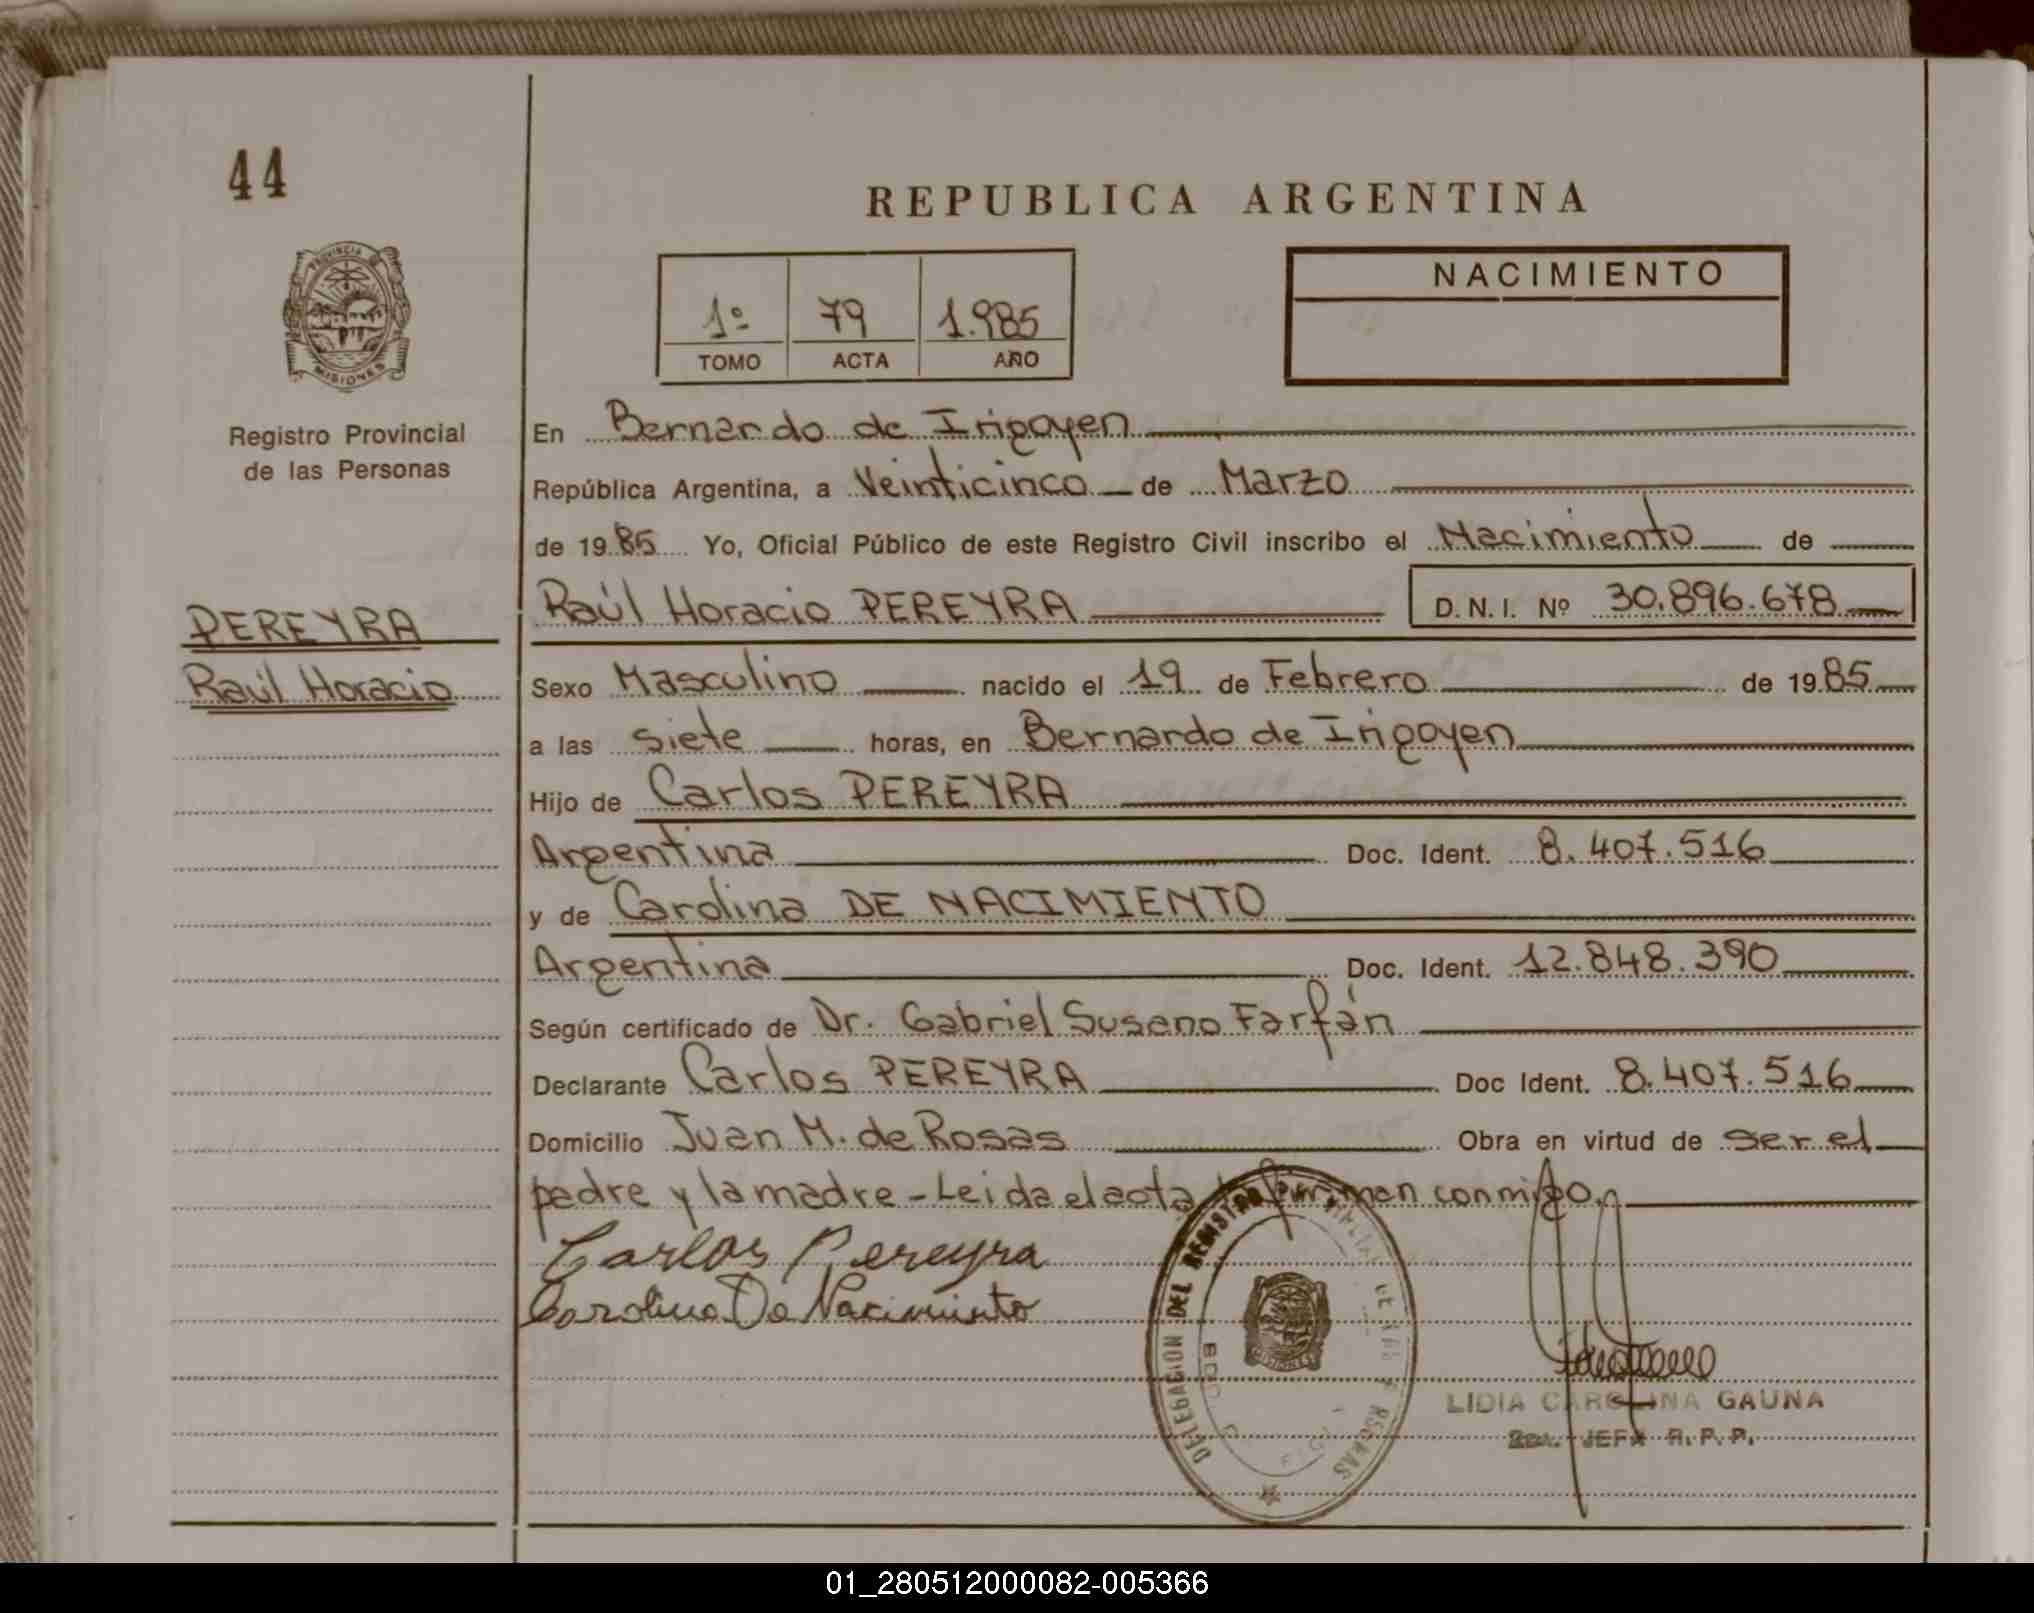 44
REPUBLICA ARGENTINA
PROVINCIA DE
MISIONES
Registro Provincial
de las Personas
1º 79 1.985
TOMO ACTA AÑO
NACIMIENTO
En Bernardo de Irigoyen
República Argentina, a Veinticinco de Marzo
de 19 85 Yo, Oficial Público de este Registro Civil inscribo el Nacimiento de
PEREYRA
Raúl Horacio
Raúl Horacio PEREYRA D. N. I. Nº 30.896.678
Sexo Masculino nacido el 19 de Febrero de 19 85
a las siete horas, en Bernardo de Irigoyen
Hijo de Carlos PEREYRA
Argentina Doc. Ident. 8.407.516
y de Carolina DE NACIMIENTO
Argentina Doc. Ident. 12.848.390
Según certificado de Dr. Gabriel Susano Farfán
Declarante Carlos PEREYRA Doc Ident. 8.407.516
Domicilio Juan M. de Rosas Obra en virtud de ser el
padre y la madre - Leida el acta firman conmigo.
Carlos Pereyra
Carolina De Nacimiento
DELEGACION DEL REGISTRO
MISIONES
LIDIA CAROLINA GAUNA
JEFA R. P. P.
01_280512000082-005366